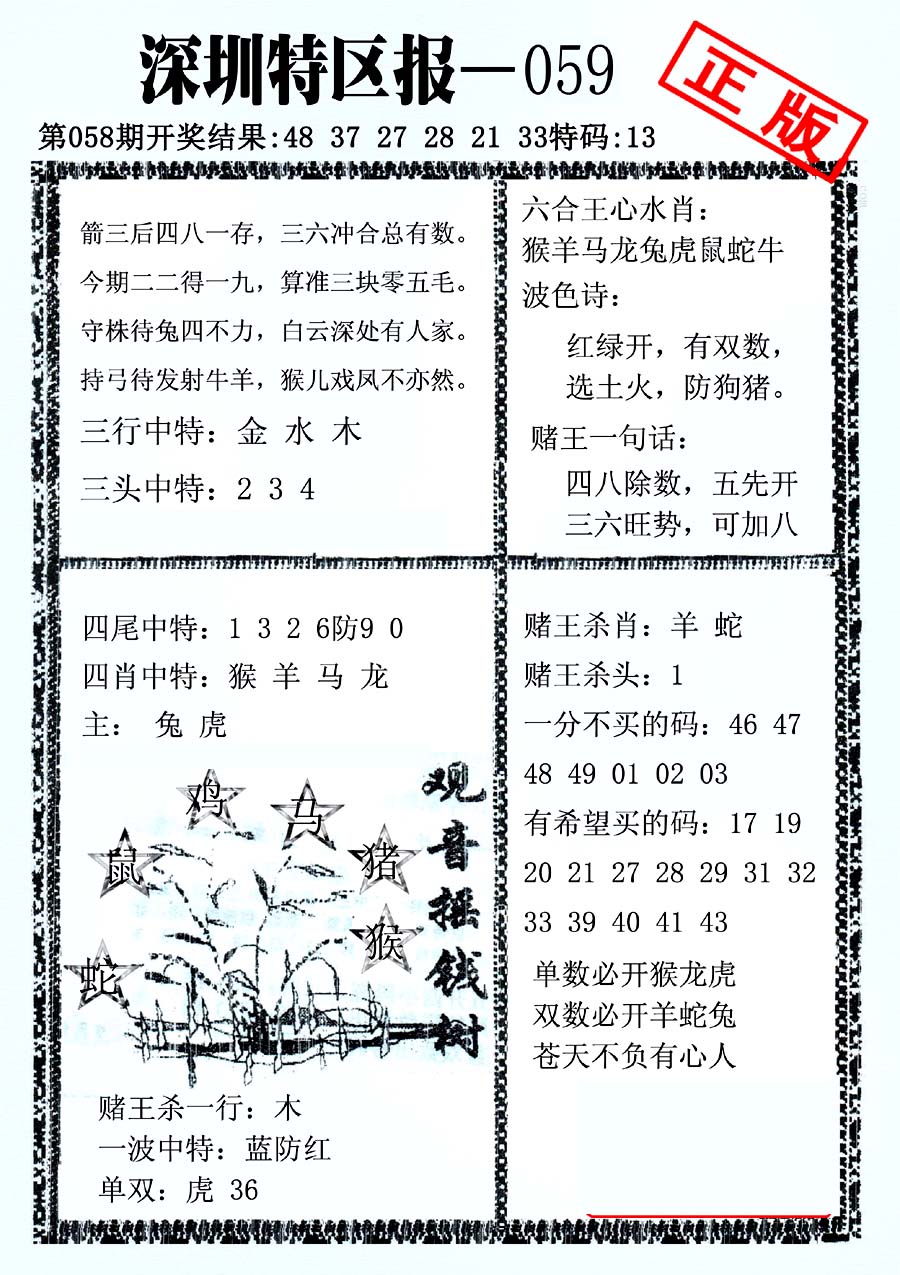 深圳特区报—059
正版
第058期开奖结果:48 37 27 28 21 33特码:13
箭三后四八一存，三六冲合总有数。
今期二二得一九，算准三块零五毛。
守株待兔四不力，白云深处有人家。
持弓待发射牛羊，猴儿戏凤不亦然。
三行中特：金 水 木
三头中特：2 3 4
六合王心水肖：
猴羊马龙兔虎鼠蛇牛
波色诗：
红绿开，有双数，
选土火，防狗猪。
赌王一句话：
四八除数，五先开
三六旺势，可加八
四尾中特：1 3 2 6防9 0
四肖中特：猴 羊 马 龙
主： 兔 虎
鸡
马
鼠
猪
猴
蛇
观音摇钱树
赌王杀一行：木
一波中特：蓝防红
单双：虎 36
赌王杀肖：羊 蛇
赌王杀头：1
一分不买的码：46 47
48 49 01 02 03
有希望买的码：17 19
20 21 27 28 29 31 32
33 39 40 41 43
单数必开猴龙虎
双数必开羊蛇兔
苍天不负有心人